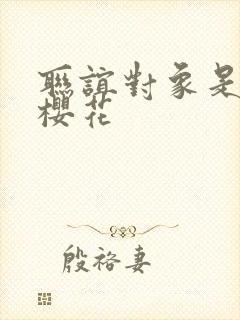 聯誼對象是
櫻花
殷裕妻